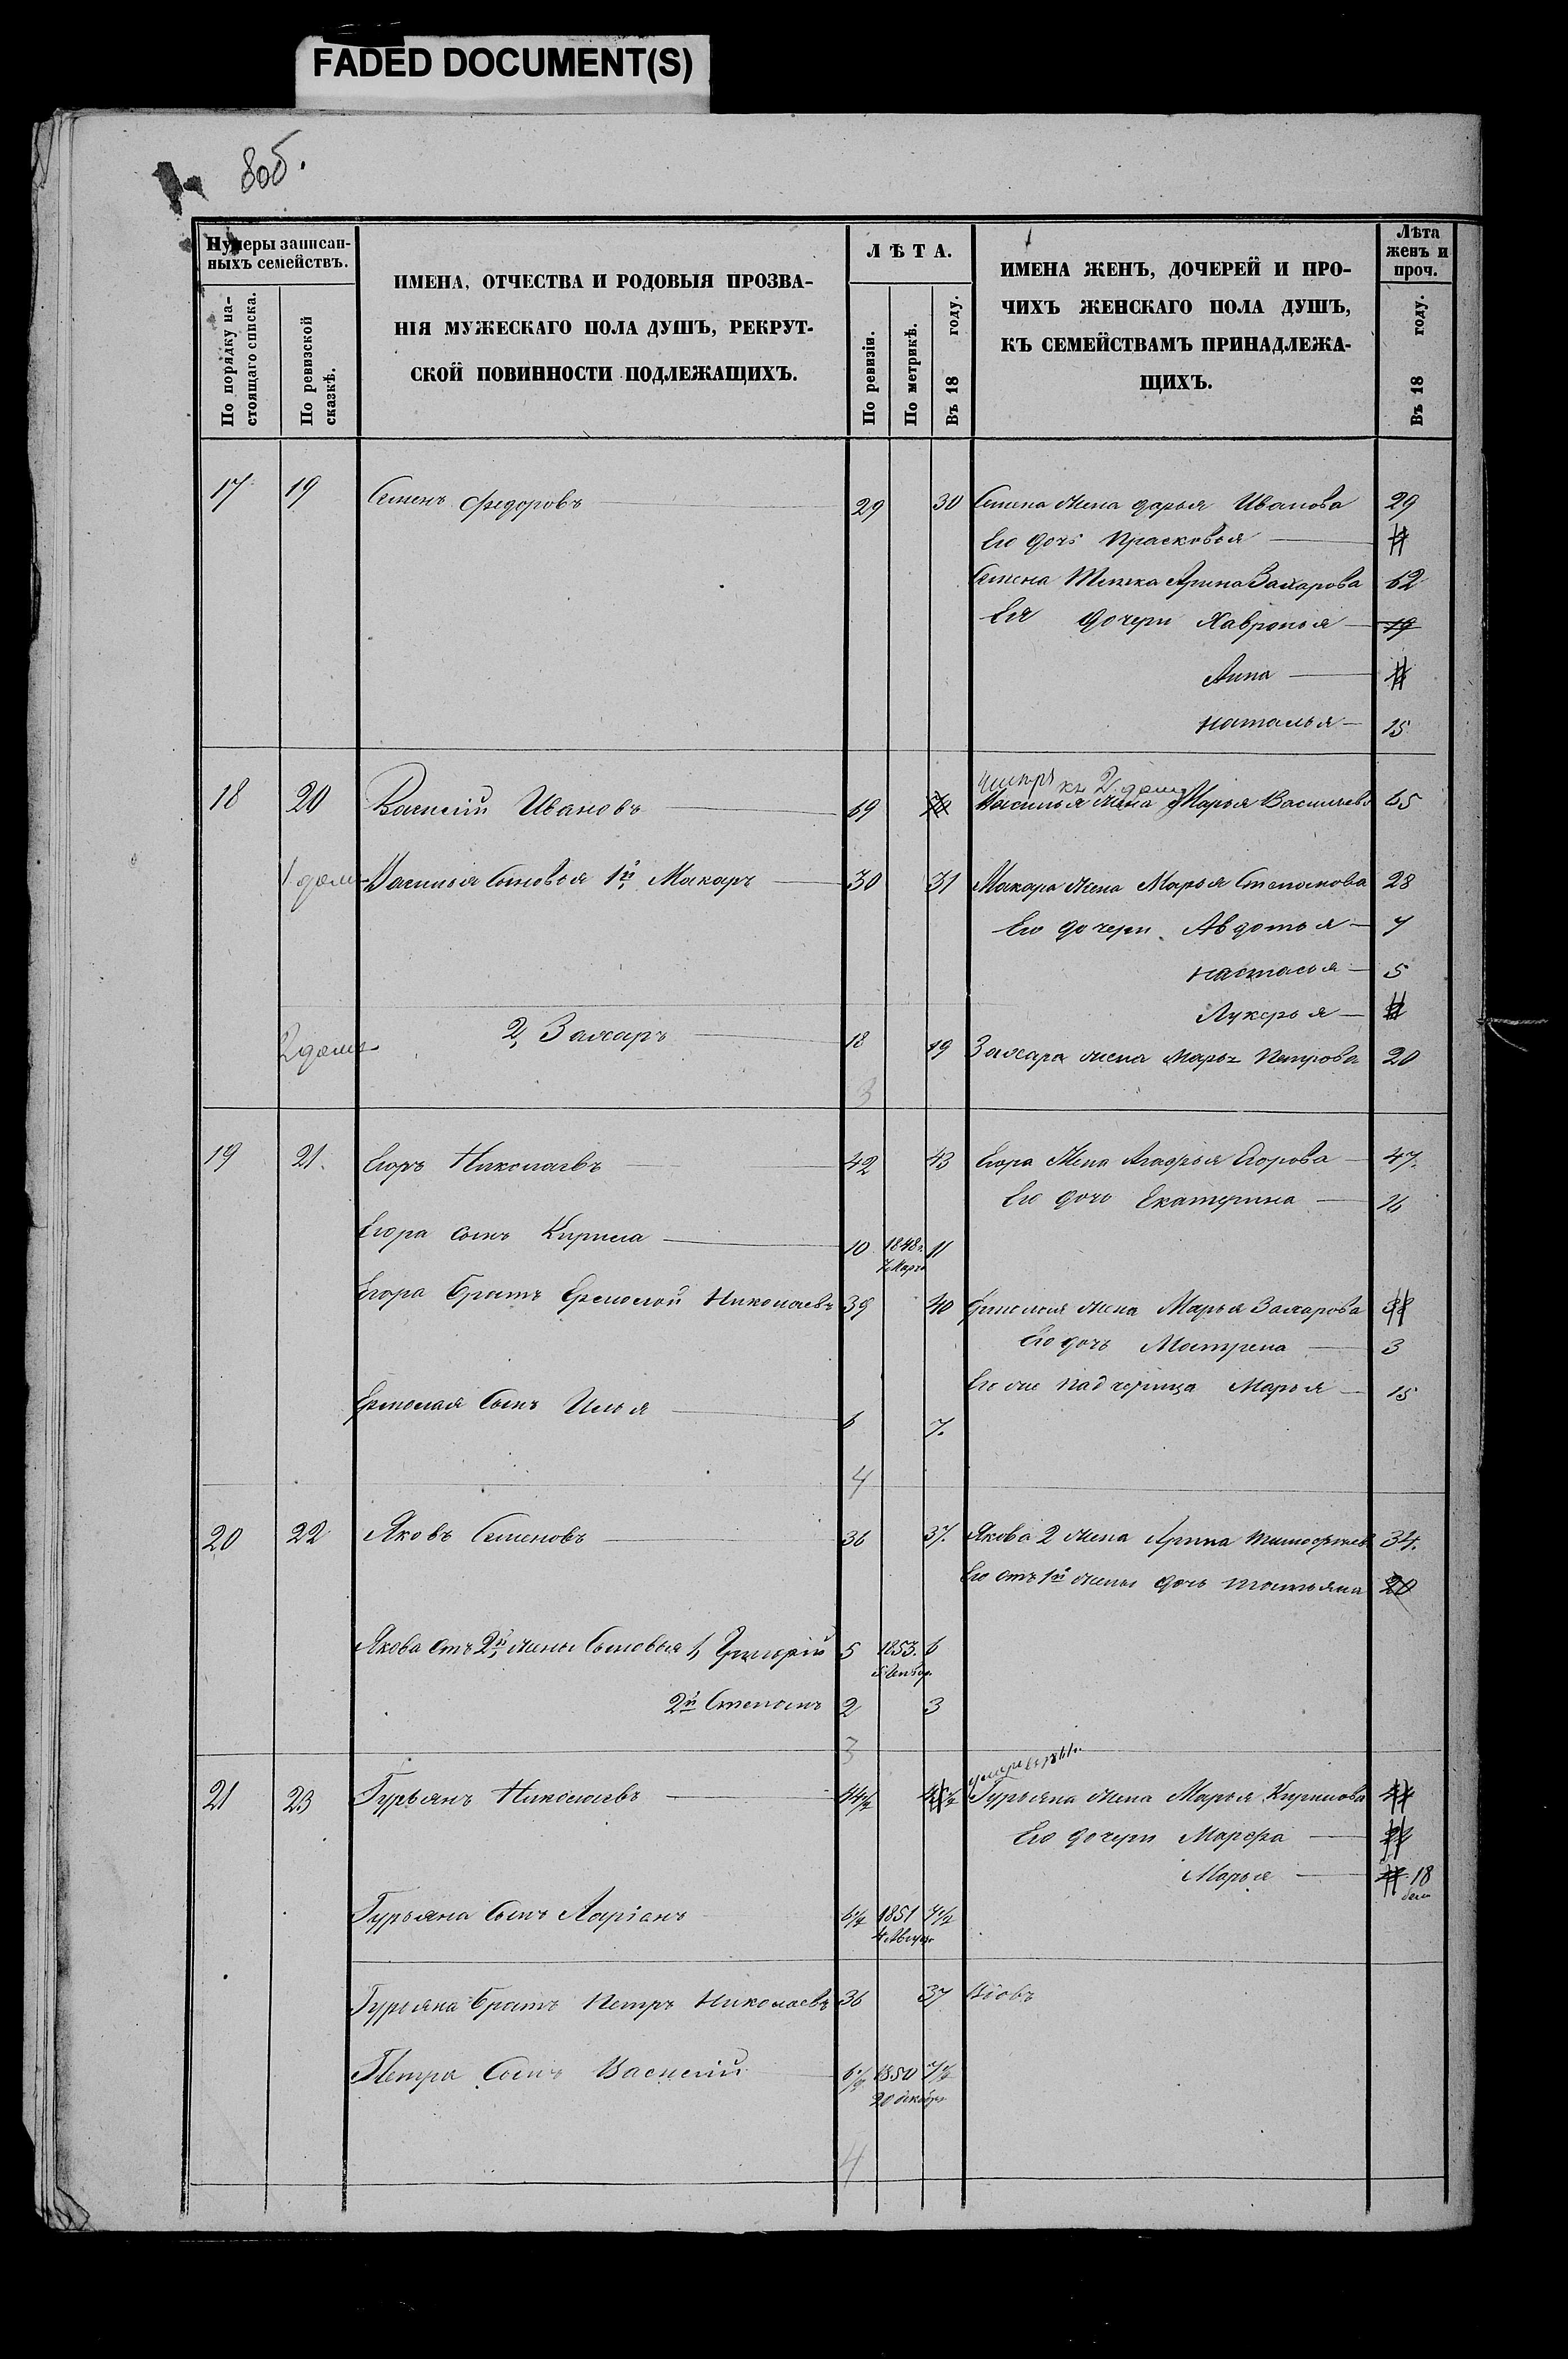 FADED DOCUMENT(S)
8об.
Нумеры записан-
ныхъ семействъ.
По порядку на-
стоящаго списка.
По ревизской
сказкѣ.
ИМЕНА, ОТЧЕСТВА И РОДОВЫЯ ПРОЗВА-
НІЯ МУЖЕСКАГО ПОЛА ДУШЪ, РЕКРУТ-
СКОЙ ПОВИННОСТИ ПОДЛЕЖАЩИХЪ.
ЛѢТА.
По ревизіи.
По метрикѣ.
Въ 18 году.
ИМЕНА ЖЕНЪ, ДОЧЕРЕЙ И ПРО-
ЧИХЪ ЖЕНСКАГО ПОЛА ДУШЪ,
КЪ СЕМЕЙСТВАМЪ ПРИНАДЛЕЖА-
ЩИХЪ.
Лѣта
женъ и
проч.
Въ 18 году.
17 19 Семенъ Федоровъ 29 30 Семена жена дарья Иванова 29
Его дочь Прасковья
Семена Тетка Арина Захарова 62
Ея дочери Хавронья 19
Анна
наталья 15
къ 2 дому
18 20 Василій Ивановъ 69 70 Василья жена Марья Васильева 65
1 домъ Василья Сыновья 1й Макаръ 30 31 Макара жена Марья Степанова 28
Его дочери Авдотья 7
настасья 5
Лукерья
2 домъ 2, Захаръ 18 19 Захара жена Марья Петрова 20
3
19 21. Егоръ Николаевъ 42 43 Егора Жена Агафья Егорова 47.
Его дочь Екатерина 16
Егора сынъ Кирила 10 1848г. 11
7 Март
Егора братъ Ермолай Николаевъ 39 40 Ермолая жена Марья Захарова 38
Его дочь Матрена 3
Его же падчерица Марья 15
Ермолая Сынъ Илья 6 7.
4
20 22 Яковъ Семеновъ 36 37. Якова 2 жена Арина Тимофеева 34.
Его отъ 1й жены дочь татьяна 20
Якова отъ 2й жены Сыновья 1, Григорій 5 1853. 6
2й Степанъ 2 3
3
21 23 Гурьянъ Николаевъ 44½ 45½ Гурьяна жена Марья Кирилова 44
Его дочери Марфа
Марья 18
Гурьяна Сынъ Ларіонъ 6½ 1851 7½
4 Август
Гурьяна братъ Петръ Николаевъ 36 37 Вдовъ
Петра Сынъ Василій 6½ 1850 7½
20 декабря
4